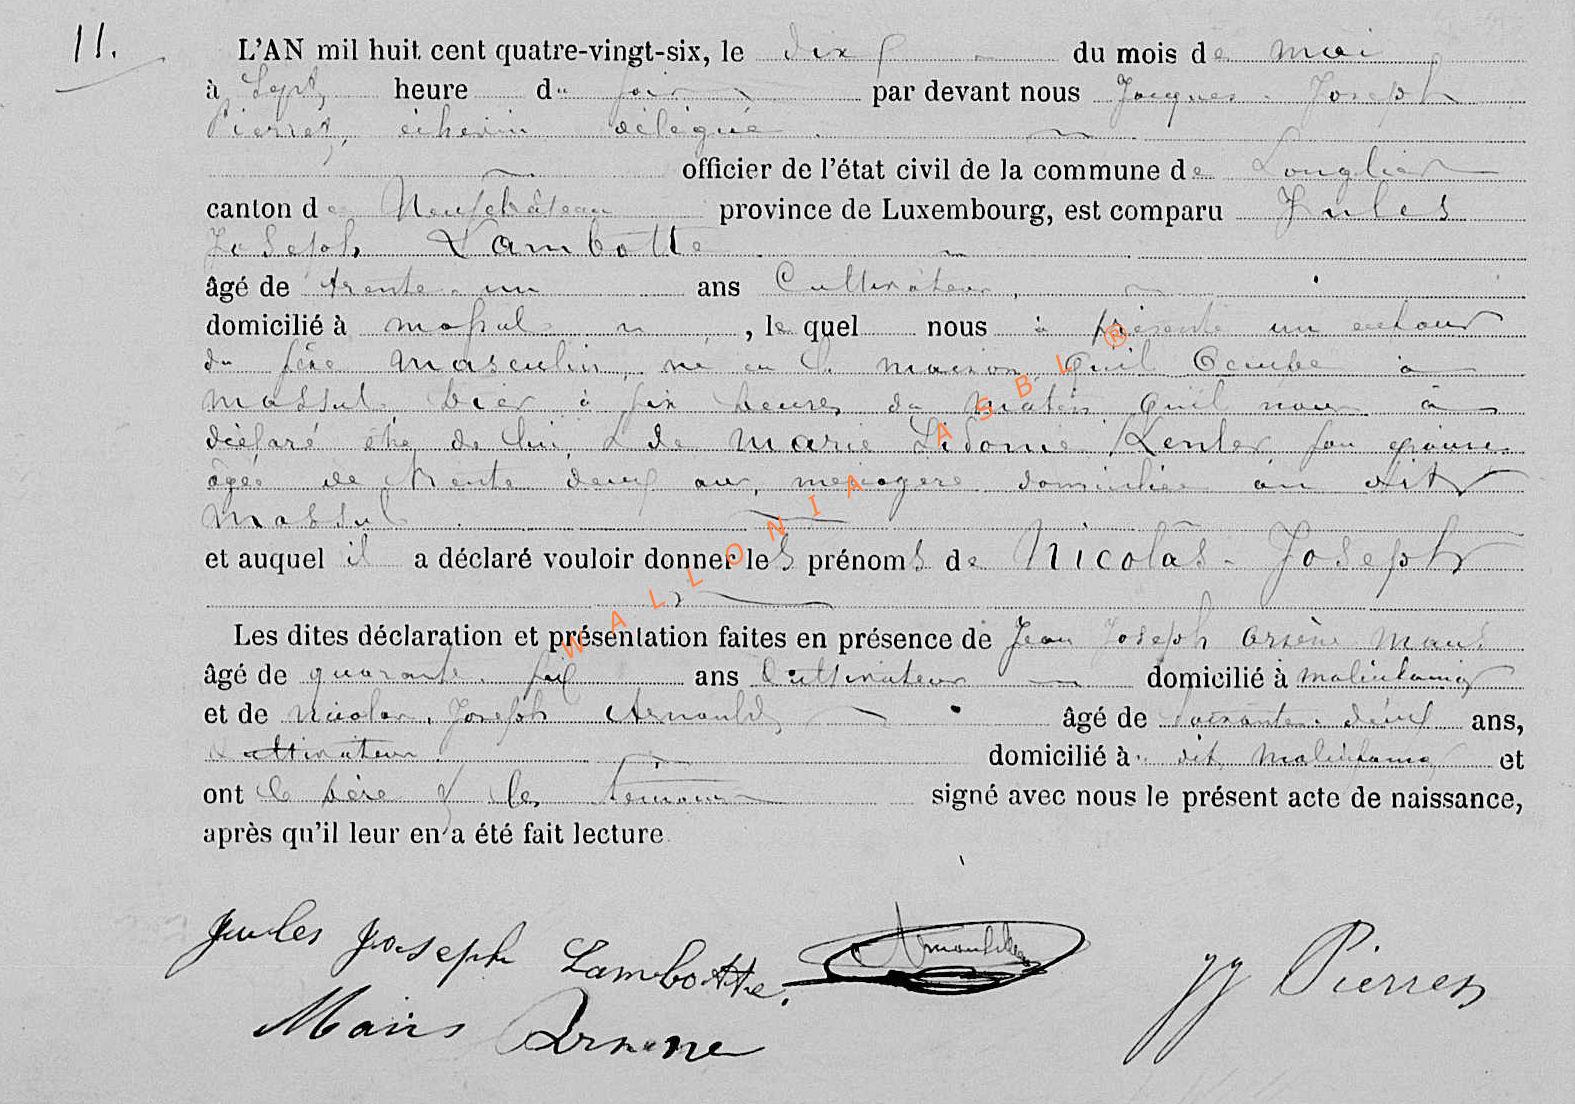 11.
L'AN mil huit cent quatre-vingt-six, le dix du mois de mai
à Sept heure du soir par devant nous Jacques-Joseph
Pierret, échevin délégué
officier de l'état civil de la commune de Longlier
canton de Neufchâteau province de Luxembourg, est comparu Jules
Joseph Lambotte
âgé de trente-un ans Cultivateur,
domicilié à Massul, le quel nous à présenté un enfant
du sexe masculin, né en la maison qu'il occupe à
Massul, hier à six heures du matin qu'il nous a
déclaré être de lui, & de Marie Sidonie son épouse
âgée de trente deux ans, ménagère domiciliée au dit
Massul
et auquel il a déclaré vouloir donner les prénoms de Nicolas-Joseph
Les dites déclaration et présentation faites en présence de Jean Joseph Arsène Maus
âgé de quarante-six ans Cultivateur domicilié à Molinfaing
et de Nicolas-Joseph Arnould âgé de soixante-deux ans,
Cultivateur domicilié à dit Molinfaing et
ont le père & les témoins signé avec nous le présent acte de naissance,
après qu'il leur en a été fait lecture
Jules Joseph Lambotte. Arnould JJ Pierret
Arsene
WALLONIA ASBL ®